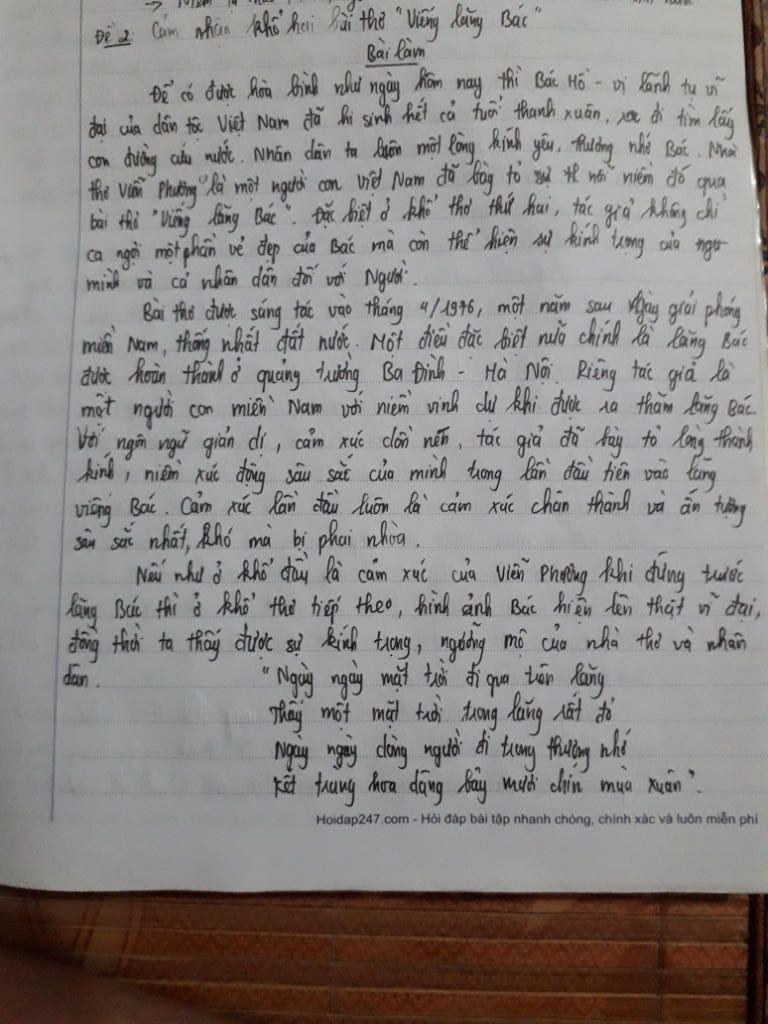 Đề 2: Cảm nhận khổ hai bài thơ "Viếng lăng Bác"
Bài làm
Để có được hòa bình như ngày hôm nay thì Bác Hồ - vị lãnh tụ vĩ
đại của dân tộc Việt Nam đã hi sinh hết cả tuổi thanh xuân, ra đi tìm lấy
con đường cứu nước. Nhân dân ta luôn một lòng kính yêu, thương nhớ Bác. Nhà
thơ Viễn Phương là một người con Việt Nam đã bày tỏ sự nỗi niềm đó qua
bài thơ "Viếng lăng Bác". Đặc biệt ở khổ thơ thứ hai, tác giả không chỉ
ca ngợi một phần vẻ đẹp của Bác mà còn thể hiện sự kính trọng của
mình và cả nhân dân đối với Người.
Bài thơ được sáng tác vào tháng 4/1976, một năm sau ngày giải phóng
miền Nam, thống nhất đất nước. Một điều đặc biệt nữa chính là lăng Bác
được hoàn thành ở quảng trường Ba Đình - Hà Nội. Riêng tác giả là
một người con miền Nam với niềm vinh dự khi được ra thăm lăng Bác.
Với ngôn ngữ giản dị, cảm xúc dồn nén, tác giả đã bày tỏ lòng thành
kính, niềm xúc động sâu sắc của mình trong lần đầu tiên vào lăng
viếng Bác. Cảm xúc lần đầu luôn là cảm xúc chân thành và ấn tượng
sâu sắc nhất, khó mà bị phai nhòa.
Nếu như ở khổ đầu là cảm xúc của Viễn Phương khi đứng trước
lăng Bác thì ở khổ thơ tiếp theo, hình ảnh Bác hiện lên thật vĩ đại,
đồng thời ta thấy được sự kính trọng, ngưỡng mộ của nhà thơ và nhân
dân.
"Ngày ngày mặt trời đi qua trên lăng
Thấy một mặt trời trong lăng rất đỏ
Ngày ngày dòng người đi trong thương nhớ
Kết tràng hoa dâng bảy mươi chín mùa xuân".
Hoidap247.com - Hỏi đáp bài tập nhanh chóng, chính xác và luôn miễn phí